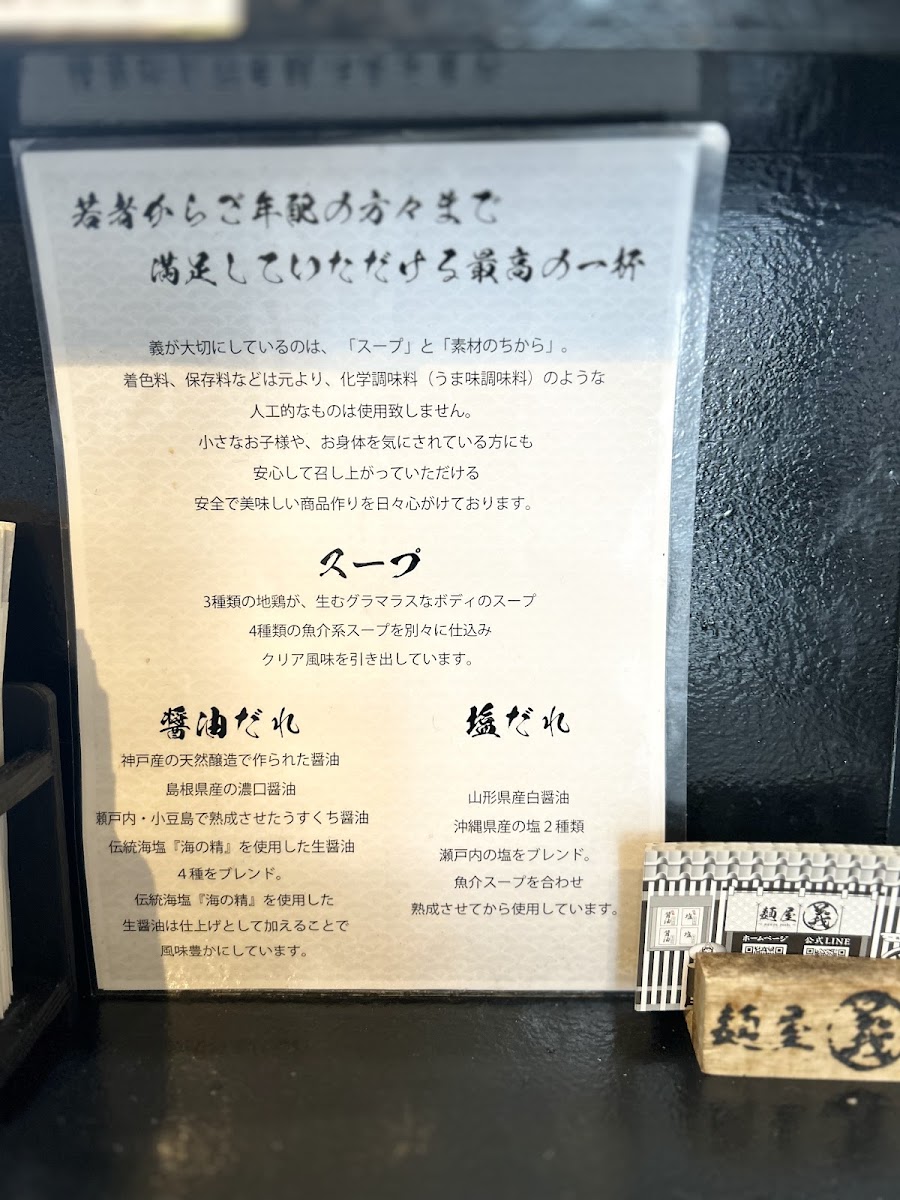 若者からご年配の方々まで
満足していただける最高の一杯
義が大切にしているのは、「スープ」と「素材のちから」。
着色料、保存料などは元より、化学調味料（うま味調味料）のような
人工的なものは使用致しません。
小さなお子様や、お身体を気にされている方にも
安心して召し上がっていただける
安全で美味しい商品作りを日々心がけております。
スープ
3種類の地鶏が、生むグラマラスなボディのスープ
4種類の魚介系スープを別々に仕込み
クリア風味を引き出しています。
醤油だれ
神戸産の天然醸造で作られた醤油
島根県産の濃口醤油
瀬戸内・小豆島で熟成させたうすくち醤油
伝統海塩『海の精』を使用した生醤油
４種をブレンド。
伝統海塩『海の精』を使用した
生醤油は仕上げとして加えることで
風味豊かにしています。
塩だれ
山形県産白醤油
沖縄県産の塩２種類
瀬戸内の塩をブレンド。
魚介スープを合わせ
熟成させてから使用しています。
麺屋 義
ホームページ 公式LINE
麺屋 義